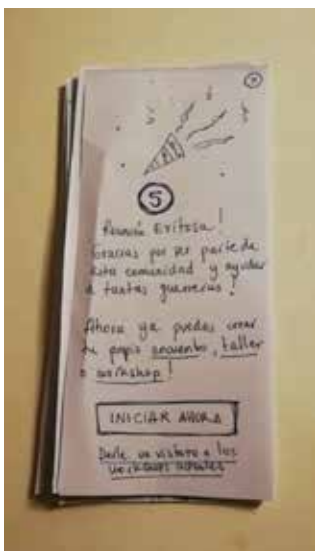 x
5
Reunión Exitosa!
Gracias por ser parte de
esta comunidad y ayudar
a tantas guerreras!
Ahora ya puedes crear
tu propio encuentro, taller
o workshop!
INICIAR AHORA
Darle un vistazo a los
workshops actuales